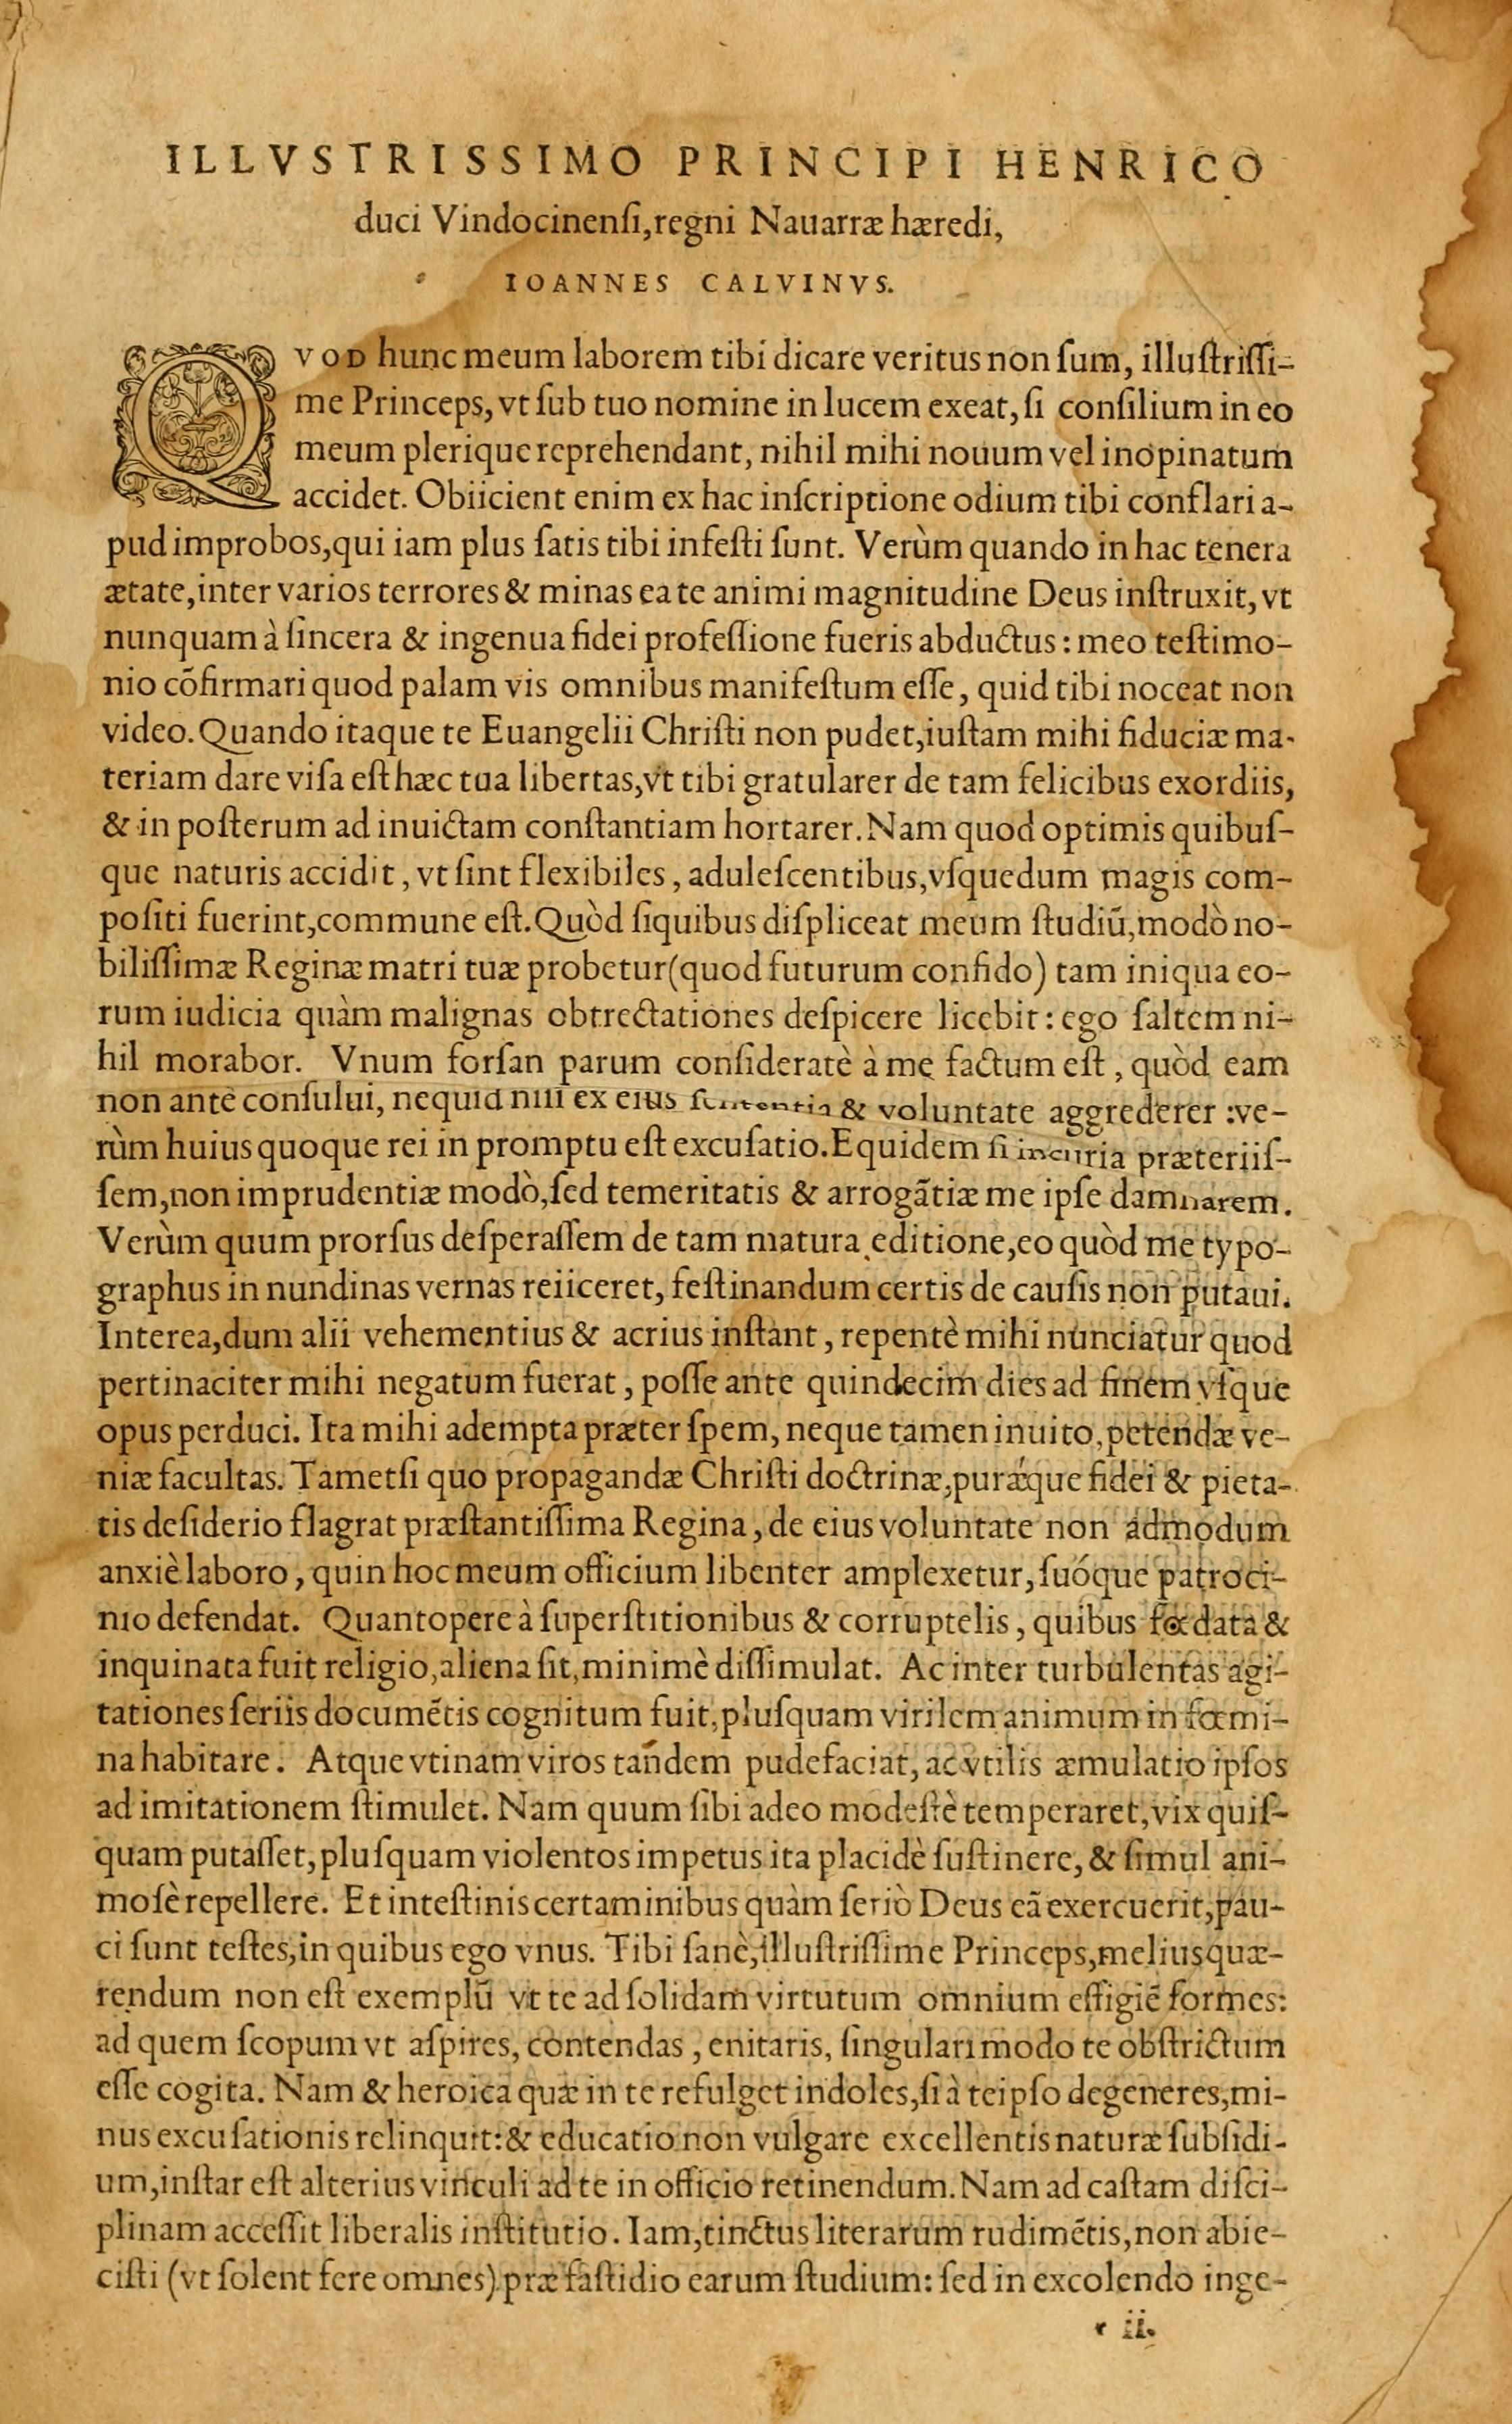 ILLVSTRISSIMO PRINCIPI HENRICO
duci Vindocinenſi, regni Nauarræ hæredi,
IOANNES CALVINVS.
QVOD hunc meum laborem tibi dicare veritus non ſum, illuſtriſſi-
me Princeps, vt ſub tuo nomine in lucem exeat, ſi conſilium in eo
meum plerique reprehendant, nihil mihi nouum vel inopinatum
accidet. Obiicient enim ex hac inſcriptione odium tibi conflari a-
pud improbos, qui iam plus ſatis tibi infeſti ſunt. Verùm quando in hac tenera
ætate, inter varios terrores & minas ea te animi magnitudine Deus inſtruxit, vt
nunquam à ſincera & ingenua fidei profeſſione fueris abductus: meo teſtimo-
nio cōfirmari quod palam vis omnibus manifeſtum eſſe, quid tibi noceat non
video. Quando itaque te Euangelii Chriſti non pudet, iuſtam mihi fiduciæ ma-
teriam dare viſa eſt hæc tua libertas, vt tibi gratularer de tam felicibus exordiis,
& in poſterum ad inuictam conſtantiam hortarer. Nam quod optimis quibuſ-
que naturis accidit, vt ſint flexibiles, aduleſcentibus, vſquedum magis com-
poſiti fuerint, commune eſt. Quòd ſiquibus diſpliceat meum ſtudiū, modò no-
biliſſimæ Reginæ matri tuæ probetur (quod futurum confido) tam iniqua eo-
rum iudicia quàm malignas obtrectationes deſpicere licebit: ego ſaltem ni-
hil morabor. Vnum forſan parum conſideratè à me factum eſt, quòd eam
non antè conſului, nequid niſi ex eius ſententia & voluntate aggrederer: ve-
rùm huius quoque rei in promptu eſt excuſatio. Equidem ſi incuria præteriiſ-
ſem, non imprudentiæ modò, ſed temeritatis & arrogātiæ me ipſe damnarem.
Verùm quum prorſus deſperaſſem de tam matura editione, eo quòd me typo-
graphus in nundinas vernas reiiceret, feſtinandum certis de cauſis non putaui.
Interea, dum alii vehementius & acrius inſtant, repentè mihi nunciatur quod
pertinaciter mihi negatum fuerat, poſſe ante quindecim dies ad finem vſque
opus perduci. Ita mihi adempta præter ſpem, neque tamen inuito, petendæ ve-
niæ facultas. Tametſi quo propagandæ Chriſti doctrinæ, puræque fidei & pieta-
tis deſiderio flagrat præſtantiſſima Regina, de eius voluntate non admodum
anxiè laboro, quin hoc meum officium libenter amplexetur, ſuóque patroci-
nio defendat. Quantopere à ſuperſtitionibus & corruptelis, quibus fœdata &
inquinata fuit religio, aliena ſit, minimè diſſimulat. Ac inter turbulentas agi-
tationes ſeriis documētis cognitum fuit, pluſquam virilem animum in fœmi-
na habitare. Atque vtinam viros tandem pudefaciat, ac vtilis æmulatio ipſos
ad imitationem ſtimulet. Nam quum ſibi adeo modeſtè temperaret, vix quiſ-
quam putaſſet, pluſquam violentos impetus ita placidè ſuſtinere, & ſimul ani-
moſè repellere. Et inteſtinis certaminibus quàm ſeriò Deus eā exercuerit, pau-
ci ſunt teſtes, in quibus ego vnus. Tibi ſanè, illuſtriſſime Princeps, melius quæ-
rendum non eſt exemplū vt te ad ſolidam virtutum omnium effigiē formes:
ad quem ſcopum vt aſpires, contendas, enitaris, ſingulari modo te obſtrictum
eſſe cogita. Nam & heroica quæ in te refulget indoles, ſi à teipſo degeneres, mi-
nus excuſationis relinquit: & educatio non vulgare excellentis naturæ ſubſidi-
um, inſtar eſt alterius vinculi ad te in officio retinendum. Nam ad caſtam diſci-
plinam acceſſit liberalis inſtitutio. Iam, tinctus literarum rudimētis, non abie-
ciſti (vt ſolent fere omnes) præ faſtidio earum ſtudium: ſed in excolendo inge-
ii.